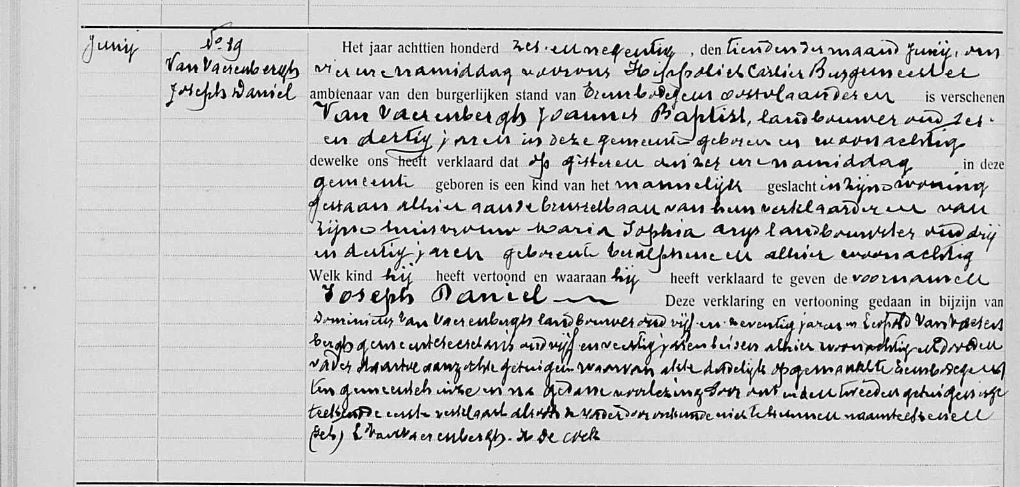 Junij
No 89
Van Vaerenbergh
Joseph Daniel
Het jaar achttien honderd zes en negentig, den tienden der maand Junij, om
vier ure namiddag voor ons Hippoliet Carlier Burgemeester
ambtenaar van den burgerlijken stand van Erembodegem oostvlaanderen is verschenen
Van Vaerenbergh Joannes Baptist, landbouwer oud zes
en dertig jaren in deze gemeente geboren en woonachtig
dewelke ons heeft verklaard dat op gisteren om zes ure namiddag in deze
gemeente geboren is een kind van het mannelijk geslacht in zijne woning
gestaan alhier aan de brusselbaan van hem verklaarder en van
zijne huisvrouw Maria Sophia Arys landbouwster oud drij
en dertig jaren geboren te alhier woonachtig
Welk kind hij heeft vertoond en waaraan hij heeft verklaard te geven de voornamen
Joseph Daniel Deze verklaring en vertooning gedaan in bijzijn van
Dominicus Van Vaerenbergh landbouwer oud vijf en zeventig jaren en Leopold Van Vaeren
bergh gemeentesecretaris oud vijf en veertig jaren beiden alhier woonachtig en door den
vader daartoe aanzochte getuigen waarvan akte dadelijk opgemaakt te Erembodegem
ten gemeentehuize en na gedane voorlezing door ons en den tweeden getuigen onderge
teekend de eerste verklaart alsook de vader door onkunde niet te kunnen naamteekenen
(get) L Van Vaerenbergh. De Cock